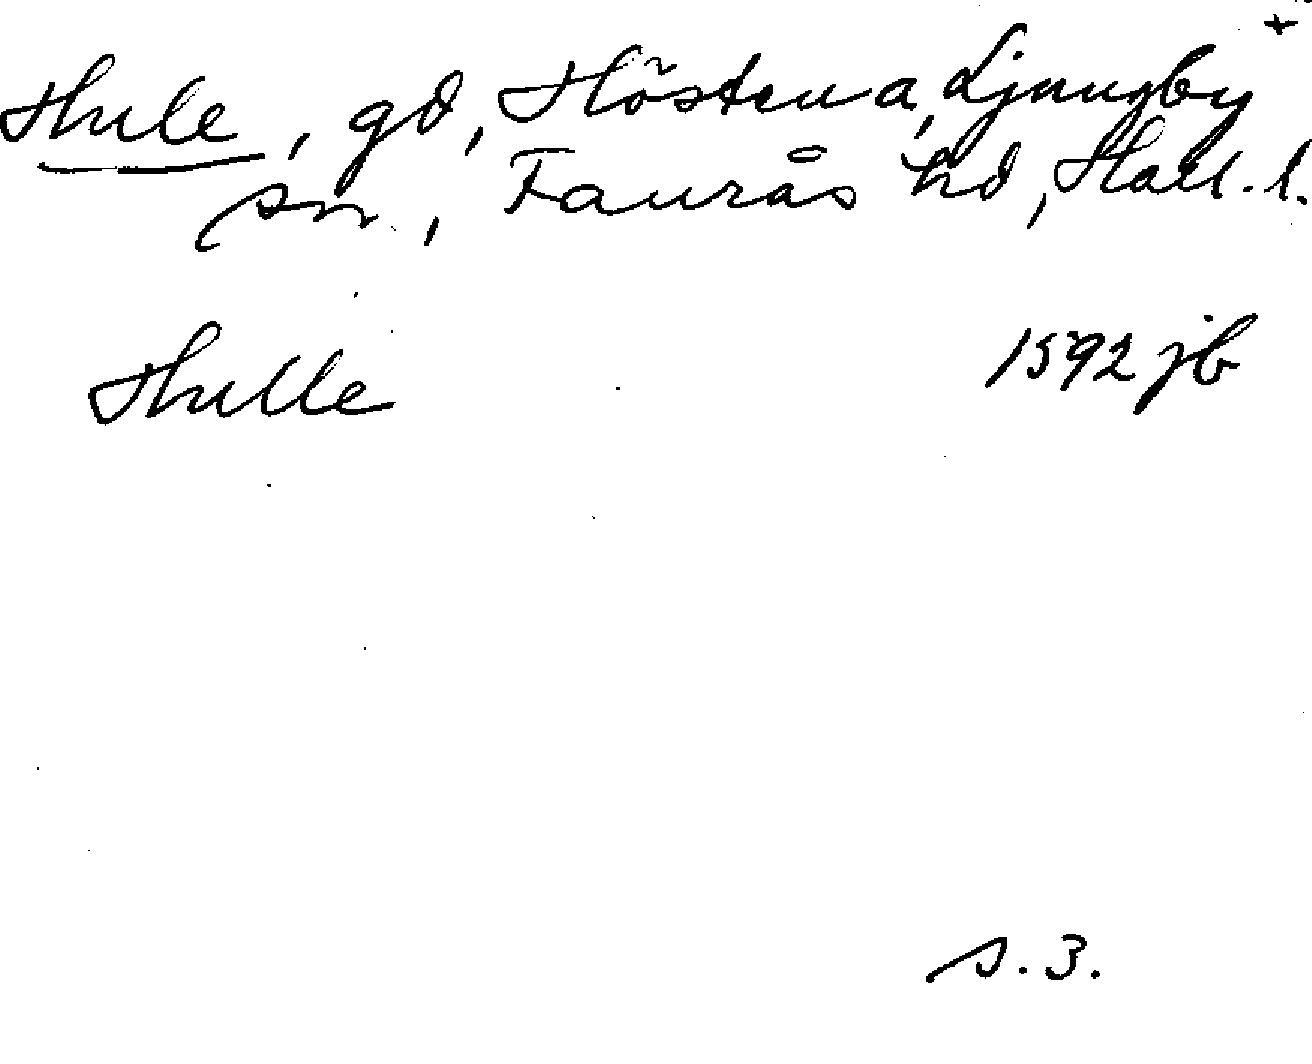 +
Hule, gd, Höstena, Ljungby
sn, Faurås hd, Hall. l.
Hulle 1592 jb
s. 3.